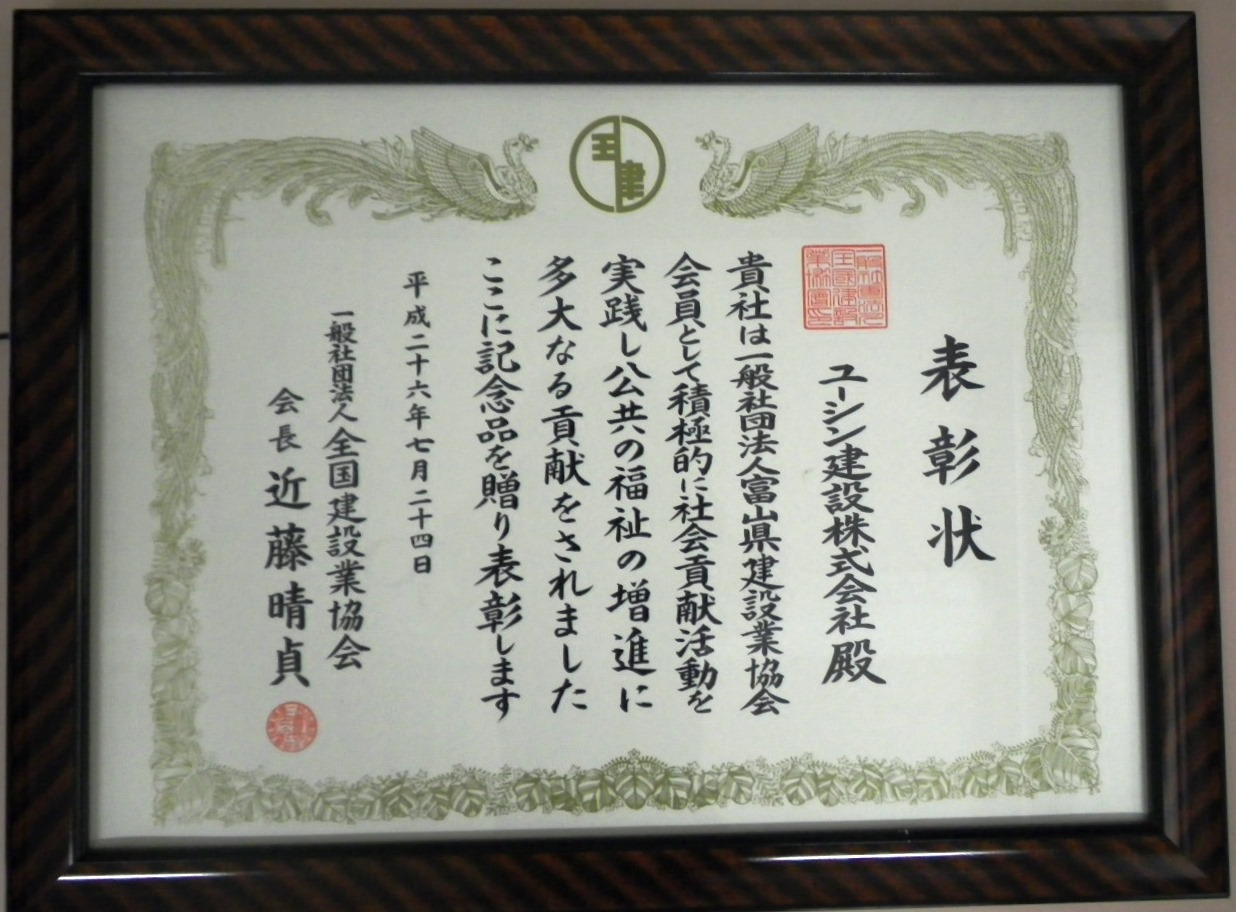 表彰状
ユーシン建設株式会社殿
貴社は一般社団法人富山県建設業協会
会員として積極的に社会貢献活動を
実践し公共の福祉の増進に
多大なる貢献をされました
ここに記念品を贈り表彰します
平成二十六年七月二十四日
一般社団法人全国建設業協会
会長近藤晴貞